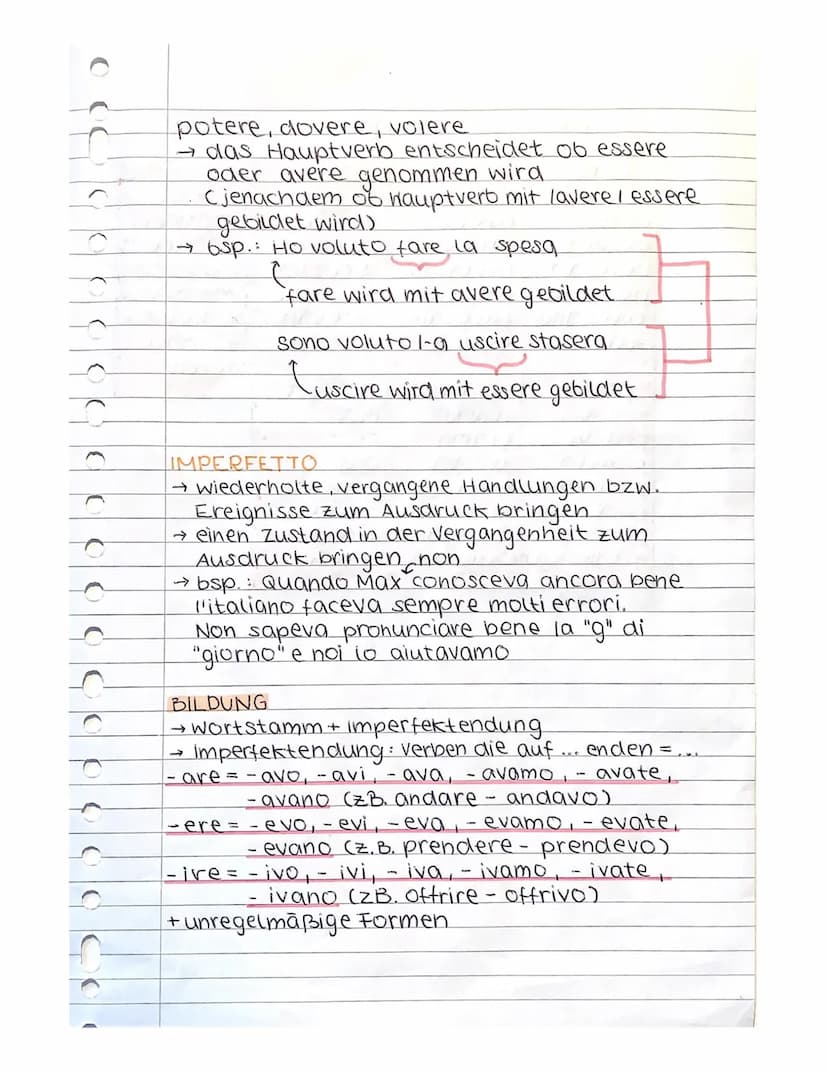 potere, dovere, volere
→ das Hauptverb entscheidet ob essere
oder avere genommen wird
(jenachdem ob Hauptverb mit lavere l essere
gebildet wird)
→ bsp.: Ho voluto fare la spesa
fare wird mit avere gebildet
sono voluto l-a uscire stasera
uscire wird mit essere gebildet
IMPERFETTO
→ wiederholte, vergangene Handlungen bzw.
Ereignisse zum Ausdruck bringen
→ einen Zustand in der Vergangenheit zum
Ausdruck bringen non
→ bsp.: Quando Max conosceva ancora bene
l'italiano faceva sempre molti errori.
Non sapeva pronunciare bene la "g" di
"giorno" e noi lo aiutavamo
BILDUNG
→ Wortstamm + Imperfektendung
→ Imperfektendung: Verben die auf ... enden = ...
- are = - avo, - avi, - ava, - avamo, - avate,
- avano (zB. andare - andavo)
- ere = - evo, - evi, - eva, - evamo, - evate,
- evano (z.B. prendere - prendevo)
- ire = - ivo, - ivi, - iva, - ivamo, - ivate,
- ivano (zB. offrire - offrivo)
+ unregelmäßige Formen